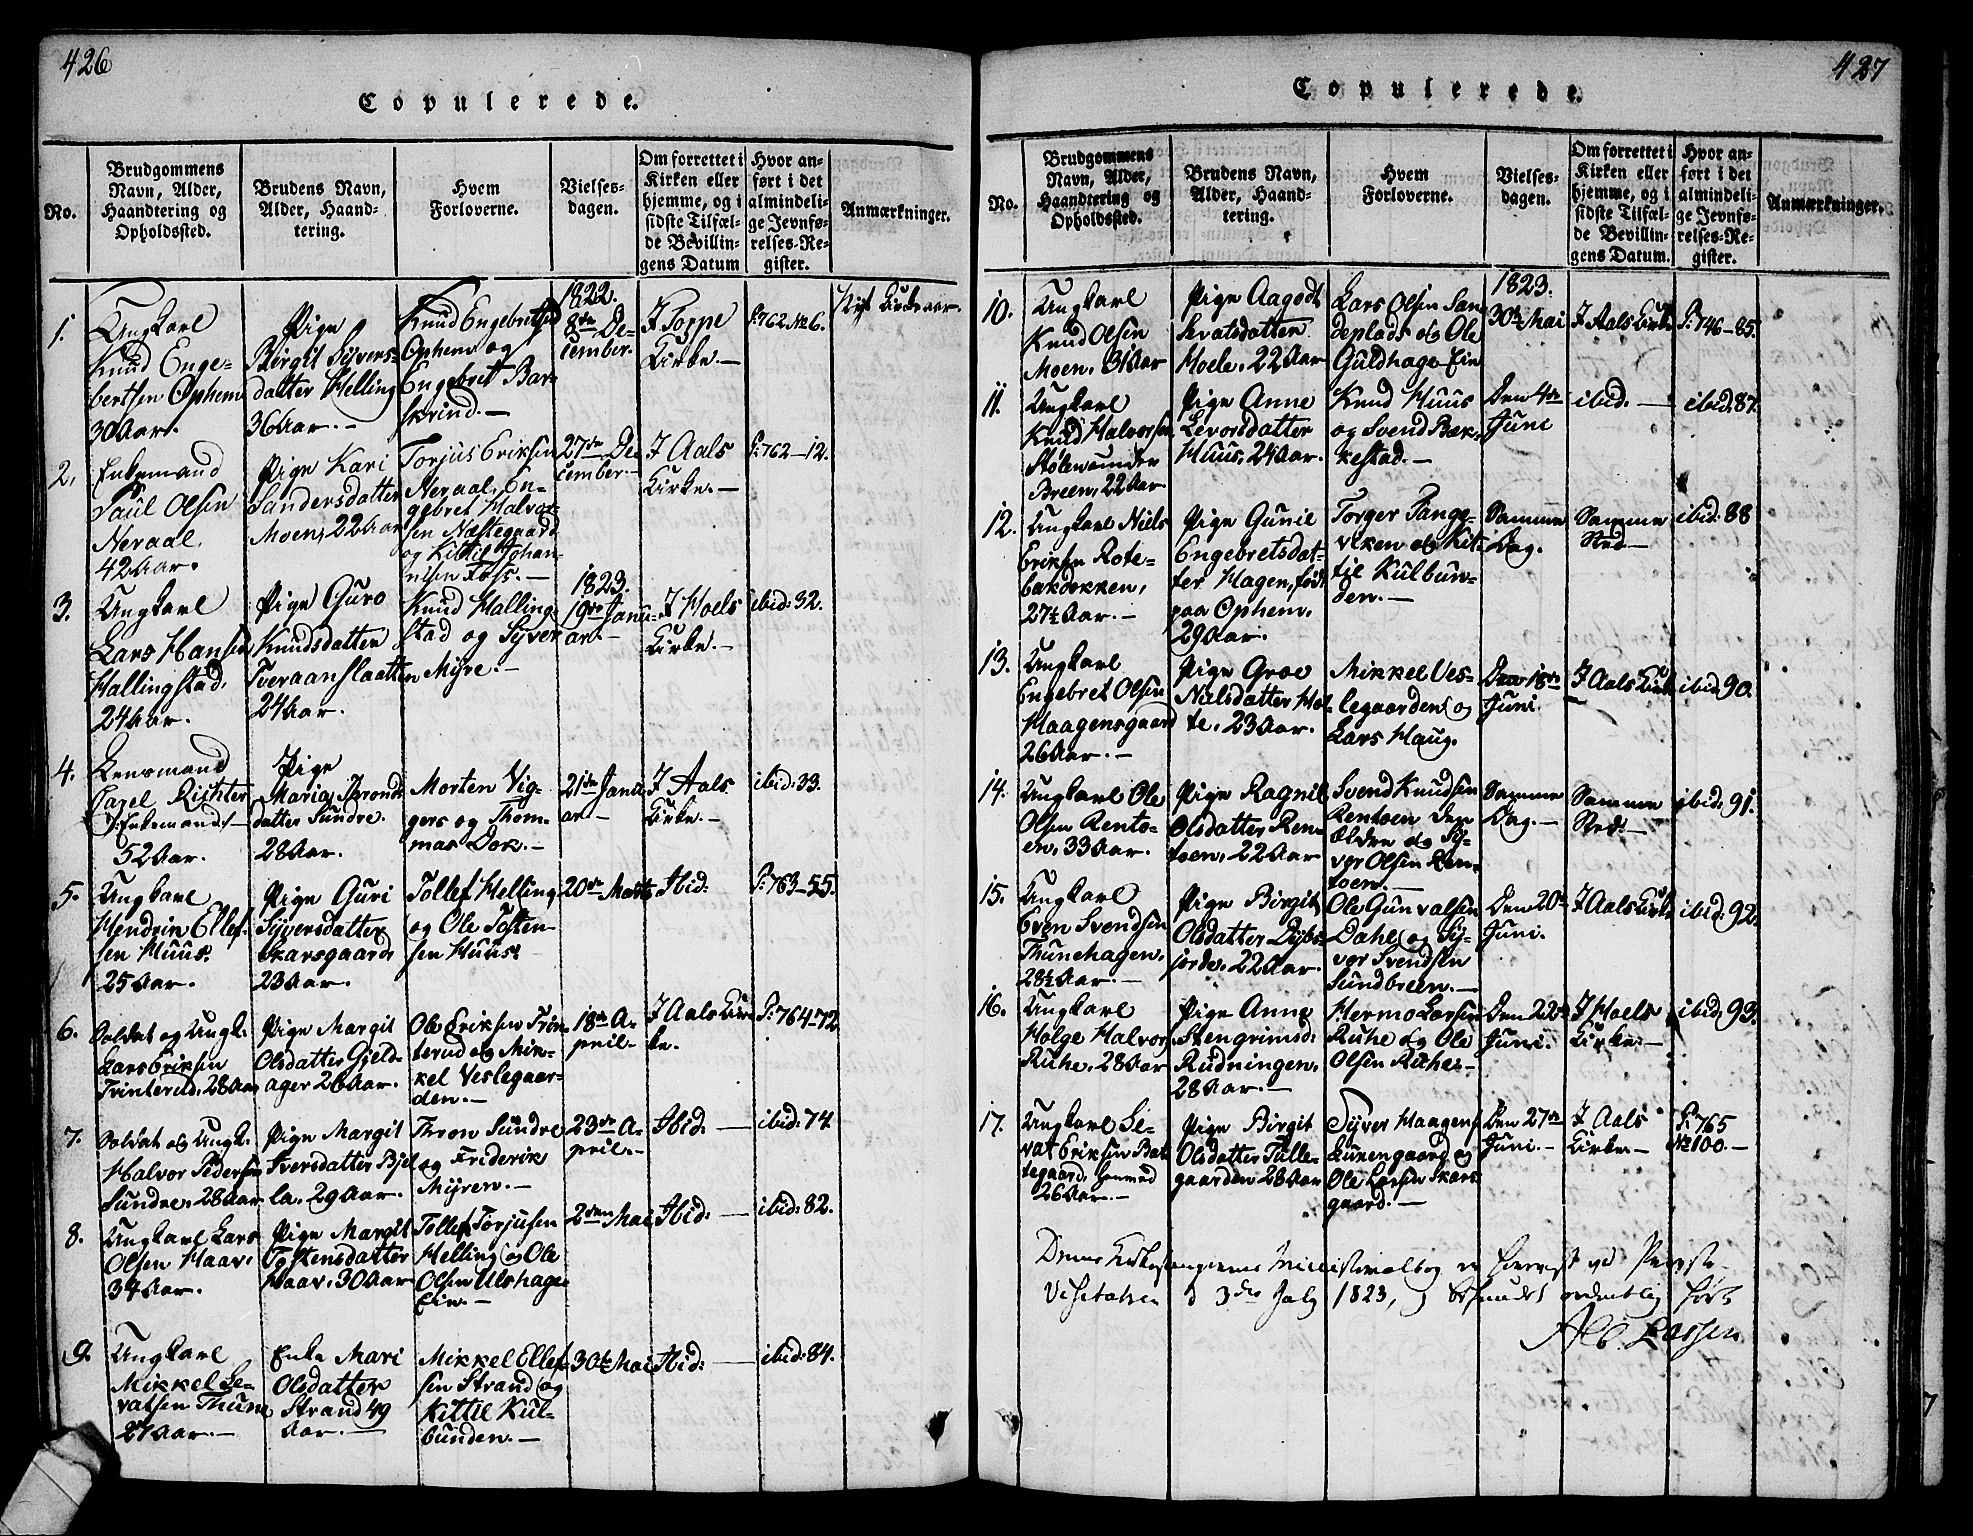 426
Copulerede.
No.
Brudgommens
Navn, Alder,
Haandtering og
Opholdssted.
Brudens Navn,
Alder, Haand-
tering.
Hvem
Forloverne.
Vielses-
dagen.
Om forrettet i
Kirken eller
hjemme, og i
sidste Tilfæl-
de Bevillin-
gens Datum
Hvor an-
ført i det
almindeli-
ge Jevnfø-
relses-Re-
gister.
Anmærkninger.
1.
Ungkarl
Knud Enge-
bertsen Ophem
30 Aar.
Pige
Birgit Syvers-
datter Helling
36 Aar. -
Knud Engebretsen
Ophem og
Engebret Bar-
skrind. -
1822.
8de De-
cember.
I Torpe
Kirke. -
P. 762 No 6.
Nyt Kirkeaar.
2.
Enkemand
Paul Olsen
Neraal,
42 Aar.
Pige Kari
Sandersdatter
Moen, 22 Aar
Torjus Eriksen
Neraal, En-
gebret Halvor-
sen Næstegaard
og Kittil Johan-
nesen Foss. -
27de De-
cember. -
I Aals
Kirke. -
P. 762-12.
3.
Ungkarl
Lars Hansen
Hallingstad,
24 Aar.
Pige Guro
Knudsdatter
Tveraanslaatten
24 Aar.
Knud Halling-
stad og Syver
Myre. -
1823.
19de Janu-
ar. -
I Hoels
Kirke. -
ibid: 32.
4.
Lensmand
Carel Richter
/: Enkemand :/ -
52 Aar.
Pige
Maria Thronds-
datter Sundre.
28 Aar.
Morten Vig-
gers og Thom-
mas Dok. -
21de Janu-
ar. -
I Aals
Kirke. -
ibid: 33.
5.
Ungkarl
Hendrin Ellef-
sen Huus.
25 Aar.
Pige Guri
Syversdatter
Skarsgaard,
23 Aar.
Tollef Helling
og Ole Tosten-
sen Huus.
20de Marts
Ibid:
P. 763-55.
6.
Soldat og Ungk.
Lars Eriksen
Trinterud, 28 Aar
Pige Margit
Olsdatter Gjeld-
ager 26 Aar.
Ole Eriksen Trin-
terud og Mik-
kel Veslegaar-
den. -
18de A-
pril -
I Aals Kir-
ke.
P. 764-72
7.
Soldat og Ungk.
Halvor Pedersen
Sundre, 28 Aar
Pige Margit
Iversdatter Bjel-
la, 29 Aar.
Thron Sundre
og Friderik
Myren. -
23de A-
pril. -
Ibid. -
ibid: 74
8.
Ungkarl Lars
Olsen Haav,
34 Aar.
Pige Margit
Tostensdatter
Haav, 30 Aar
Tollef Torjusen
Helling og Ole
Olsen Ulshagen
Ein. -
2den Mai
Ibid: -
ibid: 82.
9.
Ungkarl
Mikkel Se-
vatsen Thune
27 Aar. -
Enke Mari
Olsdatter
Strand 49
Aar. -
Mikkel Ellef-
sen Strand og
Kittil Kul-
bunden. -
30te Mai
Ibid: -
ibid: 84.
427
Copulerede.
No.
Brudgommens
Navn, Alder,
Haandtering og
Opholdssted.
Brudens Navn,
Alder, Haand-
tering.
Hvem
Forloverne.
Vielses-
dagen.
Om forrettet i
Kirken eller
hjemme, og i
sidste Tilfæl-
de Bevillin-
gens Datum.
Hvor an-
ført i det
almindeli-
ge Jevnfø-
relses-Re-
gister.
Anmærkninger.
10.
Ungkarl
Knud Olsen
Moen, 31 Aar
Pige Aagodt
Sevatsdatter
Hoele, 22 Aar
Lars Olsen San-
deplads og Ole
Guldhage Ein
1823.
30te Mai
I Aals Kirke
P. 746-85.
11.
Ungkarl
Knud Halvorsen
Stølen under
Breen, 22 Aar
Pige Anne
Levorsdatter
Huus, 24 Aar.
Knud Huus
og Svend Bæk-
kestad. -
Den 4de
Juni
ibid. -
ibid: 87.
12.
Ungkarl Niels
Eriksen Rote-
bakdokken,
27½ Aar. -
Pige Gunil
Engebretsdat-
ter Hagen, født
paa Ophem,
29 Aar.
Torger Tange-
viken og Kit-
til Kulbun-
den. -
Samme
Dag.
Samme
Sted -
ibid: 88
13.
Ungkarl
Engebret Olsen
Haagensgaard
26 Aar. -
Pige Groe
Nielsdatter Hol-
te, 23 Aar.
Mikkel Ves-
legaarden og
Lars Haug.
Den 18de
Juni.
I Aals Kirke
ibid 90.
14.
Ungkarl Ole
Olsen Rento-
en, 33 Aar.
Pige Ragnil
Olsdatter Ren-
toen, 22 Aar
Svend Knudsen
Rentoen den
ældre og Sy-
ver Olsen Ren-
toen. -
Samme
Dag. -
Samme
Sted. -
ibid: 91.
15.
Ungkarl
Even Svendsen
Thunehagen,
28½ Aar. -
Pige Birgit
Olsdatter Dybs-
jorde, 22 Aar.
Ole Gunvalsen
Dahle og Sy-
ver Svendsen
Sundbreen. -
Den 20de
Juni.
I Aals Kirke
ibid: 92.
16.
Ungkarl
Holge Halvors.
Ruhe, 28 Aar
Pige Anne
Stengrimsd:
Rudningen,
28 Aar. -
Hermo Larsen
Ruhe og Ole
Olsen Ruhe. -
Den 22de
Juni. -
I Hoels
Kirke. -
ibid: 93.
17.
Ungkarl Se-
vat Eriksen Bat-
tegaard,
26 Aar. -
Pige Birgit
Olsdatter Tulle-
gaarden 28 Aar
Syver Haagens.
Lurengaard og
Ole Larsen Skars-
gaard. -
Den 27de
Juni. -
I Aals
Kirke. -
P. 765
No 100. -
Denne Ministerialbog er foreviist ved Provste-
Visitatsen d 3die July 1823, og befundet ordentlig ført
Alb. Lassen